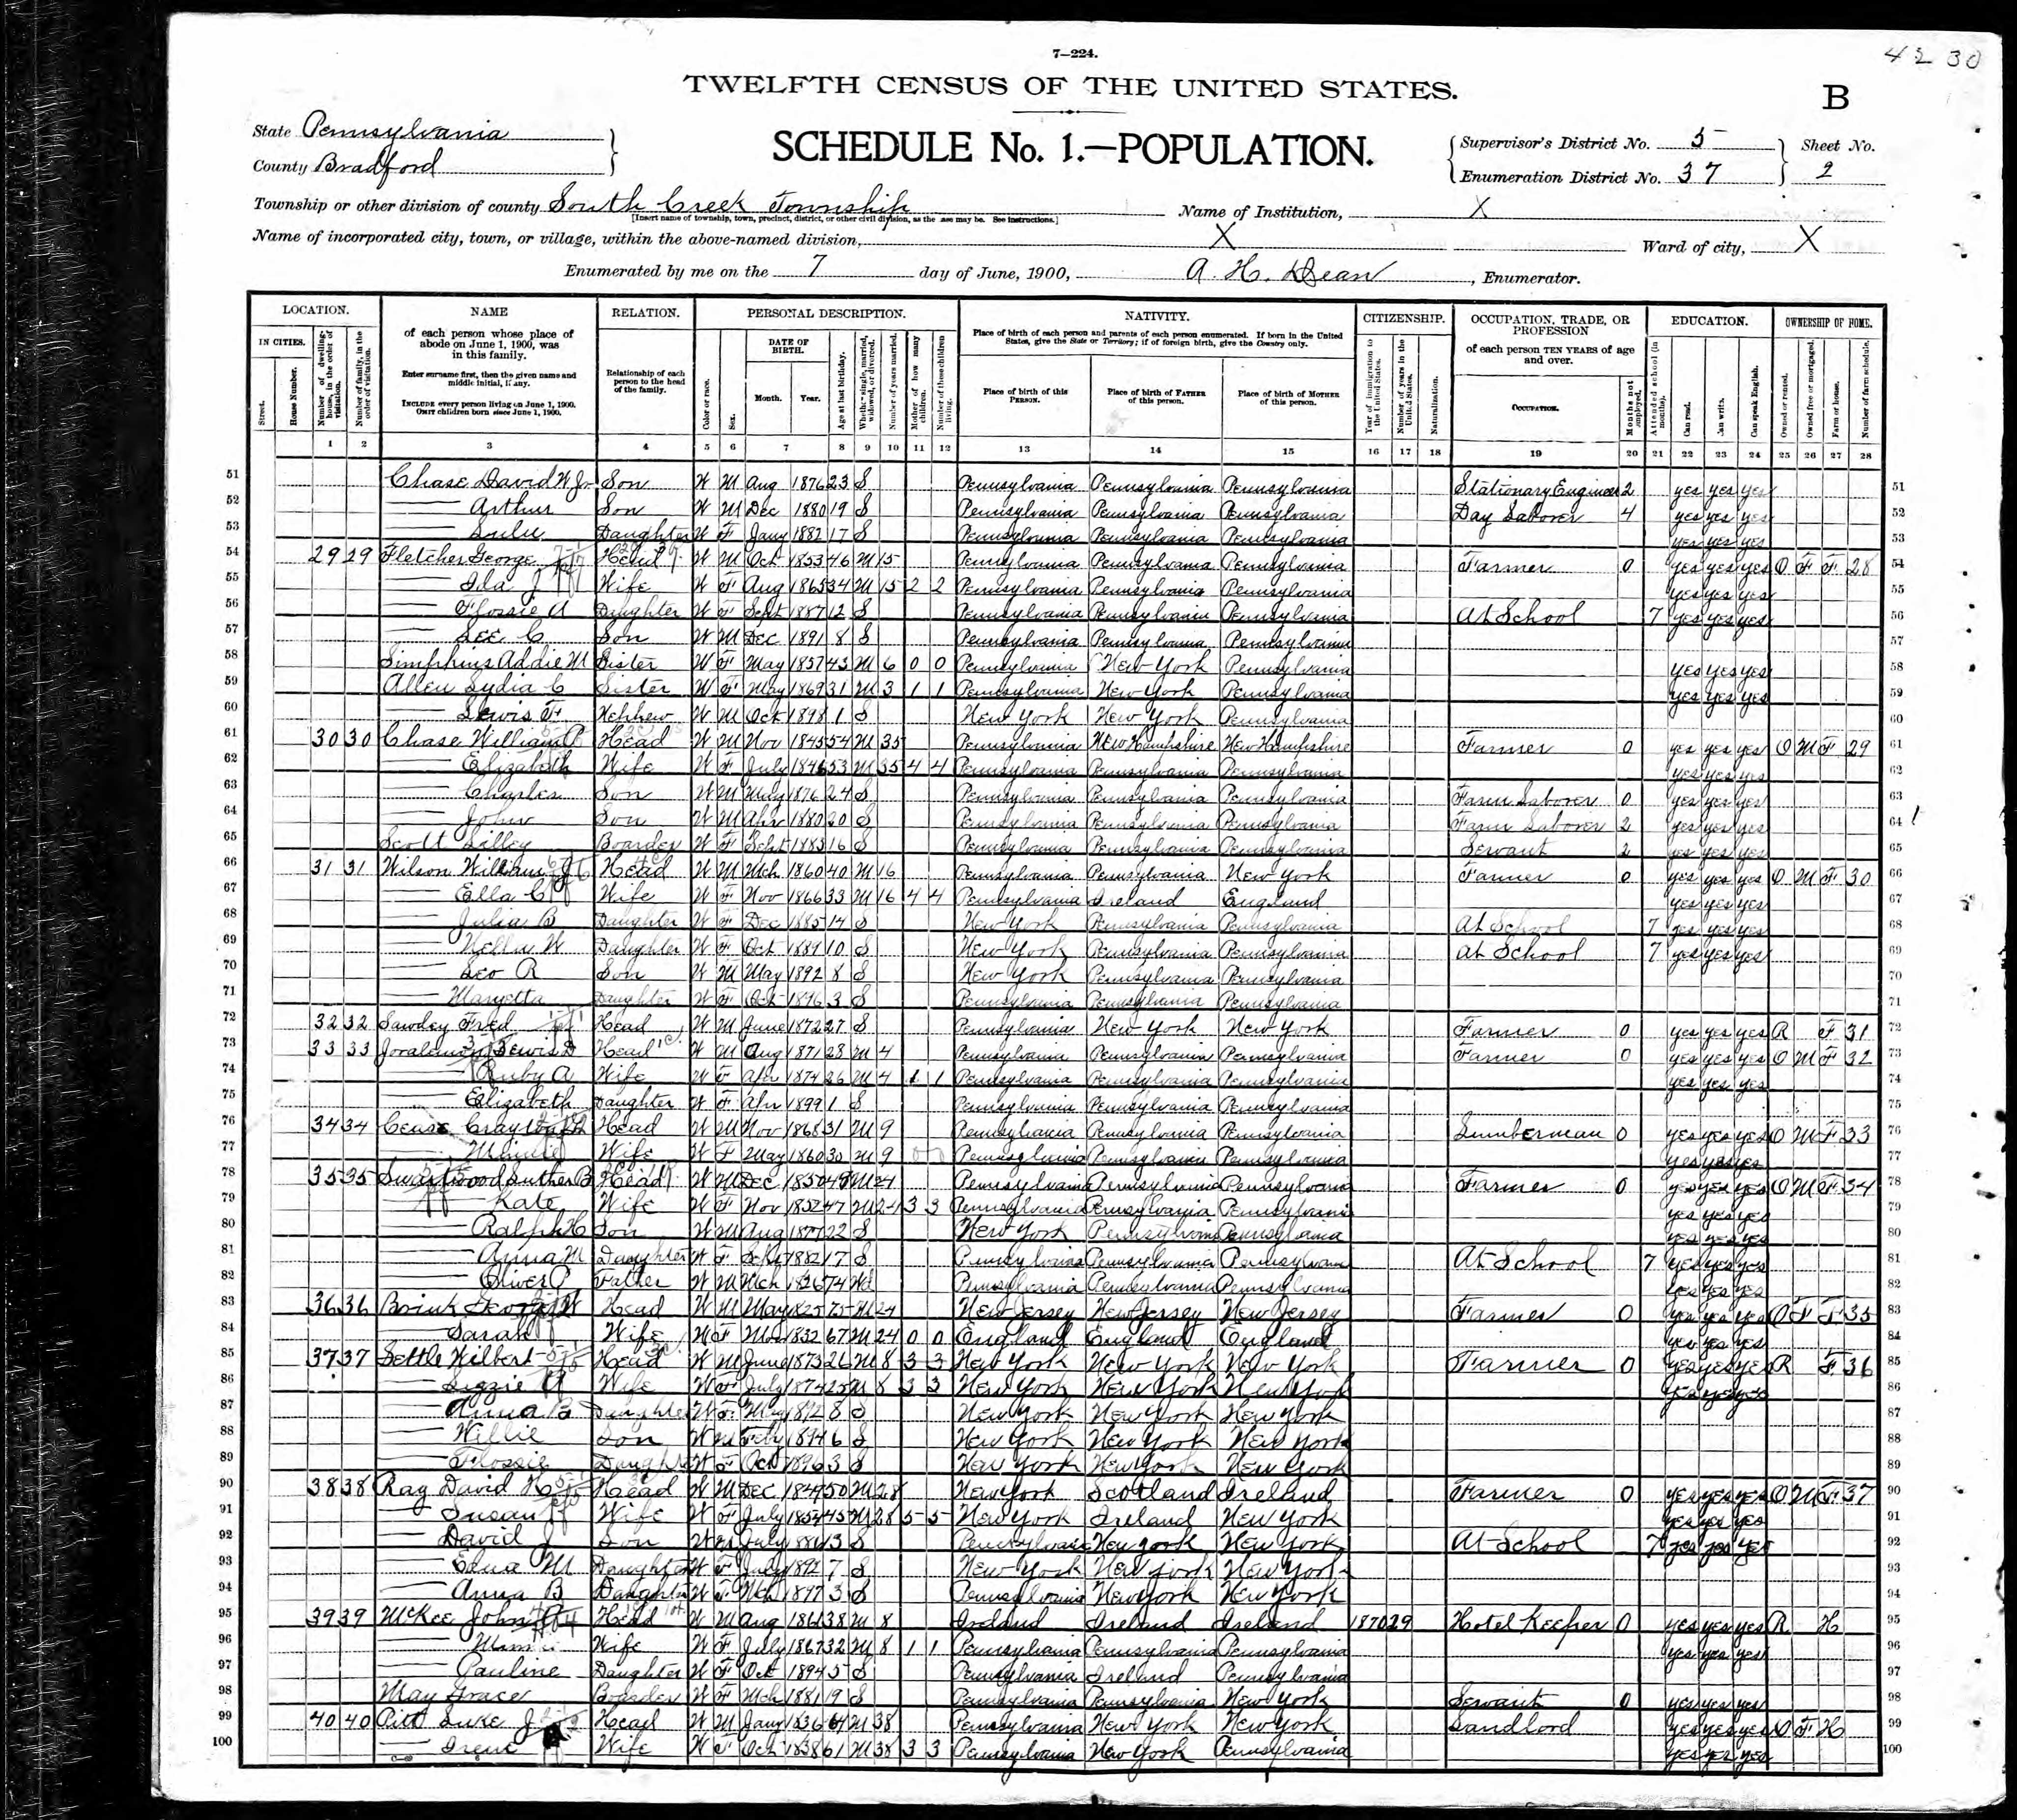 4230
7—224.
TWELFTH CENSUS OF THE UNITED STATES.
B
State Pennsylvania
County Bradford
SCHEDULE No. 1.—POPULATION.
Supervisor's District No. 5
Enumeration District No. 37
Sheet No. 2
Township or other division of county South Creek Township
[Insert name of township, town, precinct, district, or other civil division, as the case may be. See instructions.]
Name of Institution, X
Name of incorporated city, town, or village, within the above-named division, X
Ward of city, X
Enumerated by me on the 7 day of June, 1900, A. H. Dean, Enumerator.
LOCATION. NAME RELATION. PERSONAL DESCRIPTION. NATIVITY. CITIZENSHIP. OCCUPATION, TRADE, OR PROFESSION EDUCATION. OWNERSHIP OF HOME.
IN CITIES.
Street.
House Number.
Number of dwelling-house, in the order of visitation.
Number of family, in the order of visitation.
of each person whose place of abode on June 1, 1900, was in this family.
Enter surname first, then the given name and middle initial, if any.
INCLUDE every person living on June 1, 1900.
OMIT children born since June 1, 1900.
Relationship of each person to the head of the family.
Color or race.
Sex.
DATE OF BIRTH.
Month. Year.
Age at last birthday.
Whether single, married, widowed, or divorced.
Number of years married.
Mother of how many children.
Number of these children living.
Place of birth of each person and parents of each person enumerated. If born in the United States, give the State or Territory; if of foreign birth, give the Country only.
Place of birth of this PERSON.
Place of birth of FATHER of this person.
Place of birth of MOTHER of this person.
Year of immigration to the United States.
Number of years in the United States.
Naturalization.
of each person TEN YEARS of age and over.
OCCUPATION.
Months not employed.
Attended school (in months).
Can read.
Can write.
Can speak English.
Owned or rented.
Owned free or mortgaged.
Farm or house.
Number of farm schedule.
1 2 3 4 5 6 7 8 9 10 11 12 13 14 15 16 17 18 19 20 21 22 23 24 25 26 27 28
51 Chase David W Jr Son W M Aug 1876 23 S Pennsylvania Pennsylvania Pennsylvania Stationary Engineer 2 yes yes yes 51
52 — Arthur Son W M Dec 1880 19 S Pennsylvania Pennsylvania Pennsylvania Day Laborer 4 yes yes yes 52
53 — Lulu Daughter W F Jany 1882 17 S Pennsylvania Pennsylvania Pennsylvania yes yes yes 53
54 29 29 Fletcher George Head W M Oct 1853 46 M 15 Pennsylvania Pennsylvania Pennsylvania Farmer 0 yes yes yes O F F 28 54
55 — Ida J Wife W F Aug 1865 34 M 15 2 2 Pennsylvania Pennsylvania Pennsylvania yes yes yes 55
56 — Flossie A Daughter W F Sept 1887 12 S Pennsylvania Pennsylvania Pennsylvania At School 7 yes yes yes 56
57 — Lee C Son W M Dec 1891 8 S Pennsylvania Pennsylvania Pennsylvania 57
58 Simpkins Addie M Sister W F May 1857 43 M 6 0 0 Pennsylvania New York Pennsylvania yes yes yes 58
59 Allen Lydia C Sister W F May 1869 31 M 3 1 1 Pennsylvania New York Pennsylvania yes yes yes 59
60 — Lewis F Nephew W M Oct 1898 1 S New York New York Pennsylvania 60
61 30 30 Chase William P Head W M Nov 1845 54 M 35 Pennsylvania New Hampshire New Hampshire Farmer 0 yes yes yes O M F 29 61
62 — Elizabeth Wife W F July 1846 53 M 35 4 4 Pennsylvania Pennsylvania Pennsylvania yes yes yes 62
63 — Charles Son W M May 1876 24 S Pennsylvania Pennsylvania Pennsylvania Farm Laborer 0 yes yes yes 63
64 — John Son W M Apr 1880 20 S Pennsylvania Pennsylvania Pennsylvania Farm Laborer 2 yes yes yes 64
65 Scott Lilley Boarder W F Sept 1883 16 S Pennsylvania Pennsylvania Pennsylvania Servant 2 yes yes yes 65
66 31 31 Wilson William Head W M Mch 1860 40 M 16 Pennsylvania Pennsylvania New York Farmer 0 yes yes yes O M F 30 66
67 — Ella C Wife W F Nov 1866 33 M 16 4 4 Pennsylvania Ireland England yes yes yes 67
68 — Julia B Daughter W F Dec 1885 14 S New York Pennsylvania Pennsylvania At School 7 yes yes yes 68
69 — Nellie W Daughter W F Oct 1889 10 S New York Pennsylvania Pennsylvania At School 7 yes yes yes 69
70 — Leo R Son W M May 1892 8 S New York Pennsylvania Pennsylvania 70
71 — Maryetta Daughter W F Oct 1896 3 S Pennsylvania Pennsylvania Pennsylvania 71
72 32 32 Sawdey Fred Head W M June 1872 27 S Pennsylvania New York New York Farmer 0 yes yes yes R F 31 72
73 33 33 Joralemon Lewis D Head W M Aug 1871 28 M 4 Pennsylvania Pennsylvania Pennsylvania Farmer 0 yes yes yes O M F 32 73
74 — Ruby A Wife W F Apr 1874 26 M 4 1 1 Pennsylvania Pennsylvania Pennsylvania yes yes yes 74
75 — Elizabeth Daughter W F Apr 1899 1 S Pennsylvania Pennsylvania Pennsylvania 75
76 34 34 Cease Head W M Nov 1868 31 M 9 Pennsylvania Pennsylvania Pennsylvania Lumberman 0 yes yes yes O M F 33 76
77 — Minnie Wife W F May 1860 30 M 9 0 0 Pennsylvania Pennsylvania Pennsylvania yes yes yes 77
78 35 35 Swartwood Luther B Head W M Dec 1850 49 M 24 Pennsylvania Pennsylvania Pennsylvania Farmer 0 yes yes yes O M F 34 78
79 — Kate Wife W F Nov 1852 47 M 24 3 3 Pennsylvania Pennsylvania Pennsylvania yes yes yes 79
80 — Ralph H Son W M Aug 1877 22 S New York Pennsylvania Pennsylvania yes yes yes 80
81 — Anna M Daughter W F Sept 1882 17 S Pennsylvania Pennsylvania Pennsylvania At School 7 yes yes yes 81
82 — Oliver P Father W M Mch 1826 74 Wd Pennsylvania Pennsylvania Pennsylvania yes yes yes 82
83 36 36 Brink George W Head W M May 1825 75 M 24 New Jersey New Jersey New Jersey Farmer 0 yes yes yes O F F 35 83
84 — Sarah Wife W F 1832 67 M 24 0 0 England England England yes yes yes 84
85 37 37 Settle Wilbert Head W M June 1873 26 M 8 3 3 New York New York New York Farmer 0 yes yes yes R F 36 85
86 — Lizzie A Wife W F July 1874 25 M 8 3 3 New York New York New York yes yes yes 86
87 — Anna B Daughter W F May 1892 8 S New York New York New York 87
88 — Willie Son W M Feby 1894 6 S New York New York New York 88
89 — Flossie Daughter W F Oct 1896 3 S New York New York New York 89
90 38 38 Ray David H Head W M Dec 1849 50 M 28 New York Scotland Ireland Farmer 0 yes yes yes O M F 37 90
91 — Susan Wife W F July 1854 45 M 28 5 5 New York Ireland New York yes yes yes 91
92 — David J Son W M July 1886 13 S Pennsylvania New York New York At School 7 yes yes yes 92
93 — M Daughter W F July 1892 7 S New York New York New York 93
94 — Anna B Daughter W F Mch 1897 3 S Pennsylvania New York New York 94
95 39 39 McKee John Head W M Aug 1861 38 M 8 Ireland Ireland Ireland 1870 29 Hotel Keeper 0 yes yes yes R H 95
96 — Wife W F July 1867 32 M 8 1 1 Pennsylvania Pennsylvania Pennsylvania yes yes yes 96
97 — Pauline Daughter W F Oct 1894 5 S Pennsylvania Ireland Pennsylvania 97
98 May Grace Boarder W F Mch 1881 19 S Pennsylvania Pennsylvania New York Servant 0 yes yes yes 98
99 40 40 Pitt Luke J Head W M Jany 1836 64 M 38 Pennsylvania New York New York Landlord yes yes yes O F H 99
100 — Irene Wife W F Oct 1838 61 M 38 3 3 Pennsylvania New York Pennsylvania yes yes yes 100